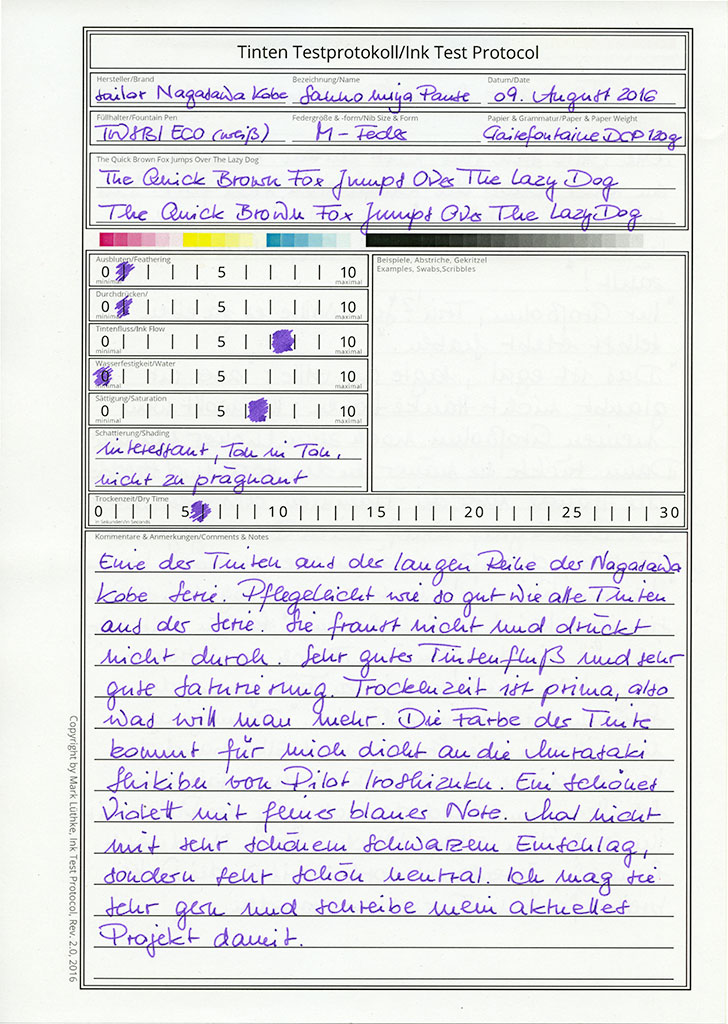 Tinten Testprotokoll/Ink Test Protocol
Hersteller/Brand Bezeichnung/Name Datum/Date
Sailor Nagasawa Kobe Sannomiya Panse 09. August 2016
Füllhalter/Fountain Pen Federgröße & -form/Nib Size & Form Papier & Grammatur/Paper & Paper Weight
TWSBI ECO (weiß) M-Feder Clairefontaine DCP 120g
The Quick Brown Fox Jumps Over The Lazy Dog
The Quick Brown Fox Jumps Over The Lazy Dog
The Quick Brown Fox Jumps Over The Lazy Dog
Ausbluten/Feathering
0 5 10
minimal maximal
Durchdrücken/
0 5 10
minimal maximal
Tintenfluss/Ink Flow
0 5 10
minimal maximal
Wasserfestigkeit/Water
0 5 10
minimal maximal
Sättigung/Saturation
0 5 10
minimal maximal
Beispiele, Abstriche, Gekritzel
Examples, Swabs,Scribbles
Schattierung/Shading
interessant, Ton in Ton,
nicht zu prägnant
Trockenzeit/Dry Time
0 5 10 15 20 25 30
in Sekunden/in Seconds
Kommentare & Anmerkungen/Comments & Notes
Eine der Tinten aus der langen Reihe der Nagasawa
Kobe Serie. Pflegeleicht wie so gut wie alle Tinten
aus der Serie. Sie franst nicht und drückt
nicht durch. Sehr guter Tintenfluß und sehr
gute Saturierung. Trockenzeit ist prima, also
was will man mehr. Die Farbe der Tinte
kommt für mich dicht an die Murasaki
Shikibu von Pilot Iroshizuku. Ein schönes
Violett mit feiner blauer Note. Mal nicht
mit sehr schönem schwarzem Einschlag,
sondern sehr schön neutral. Ich mag sie
sehr gern und schreibe mein aktuelles
Projekt damit.
Copyright by Mark Lüthke, Ink Test Protocol, Rev. 2.0, 2016